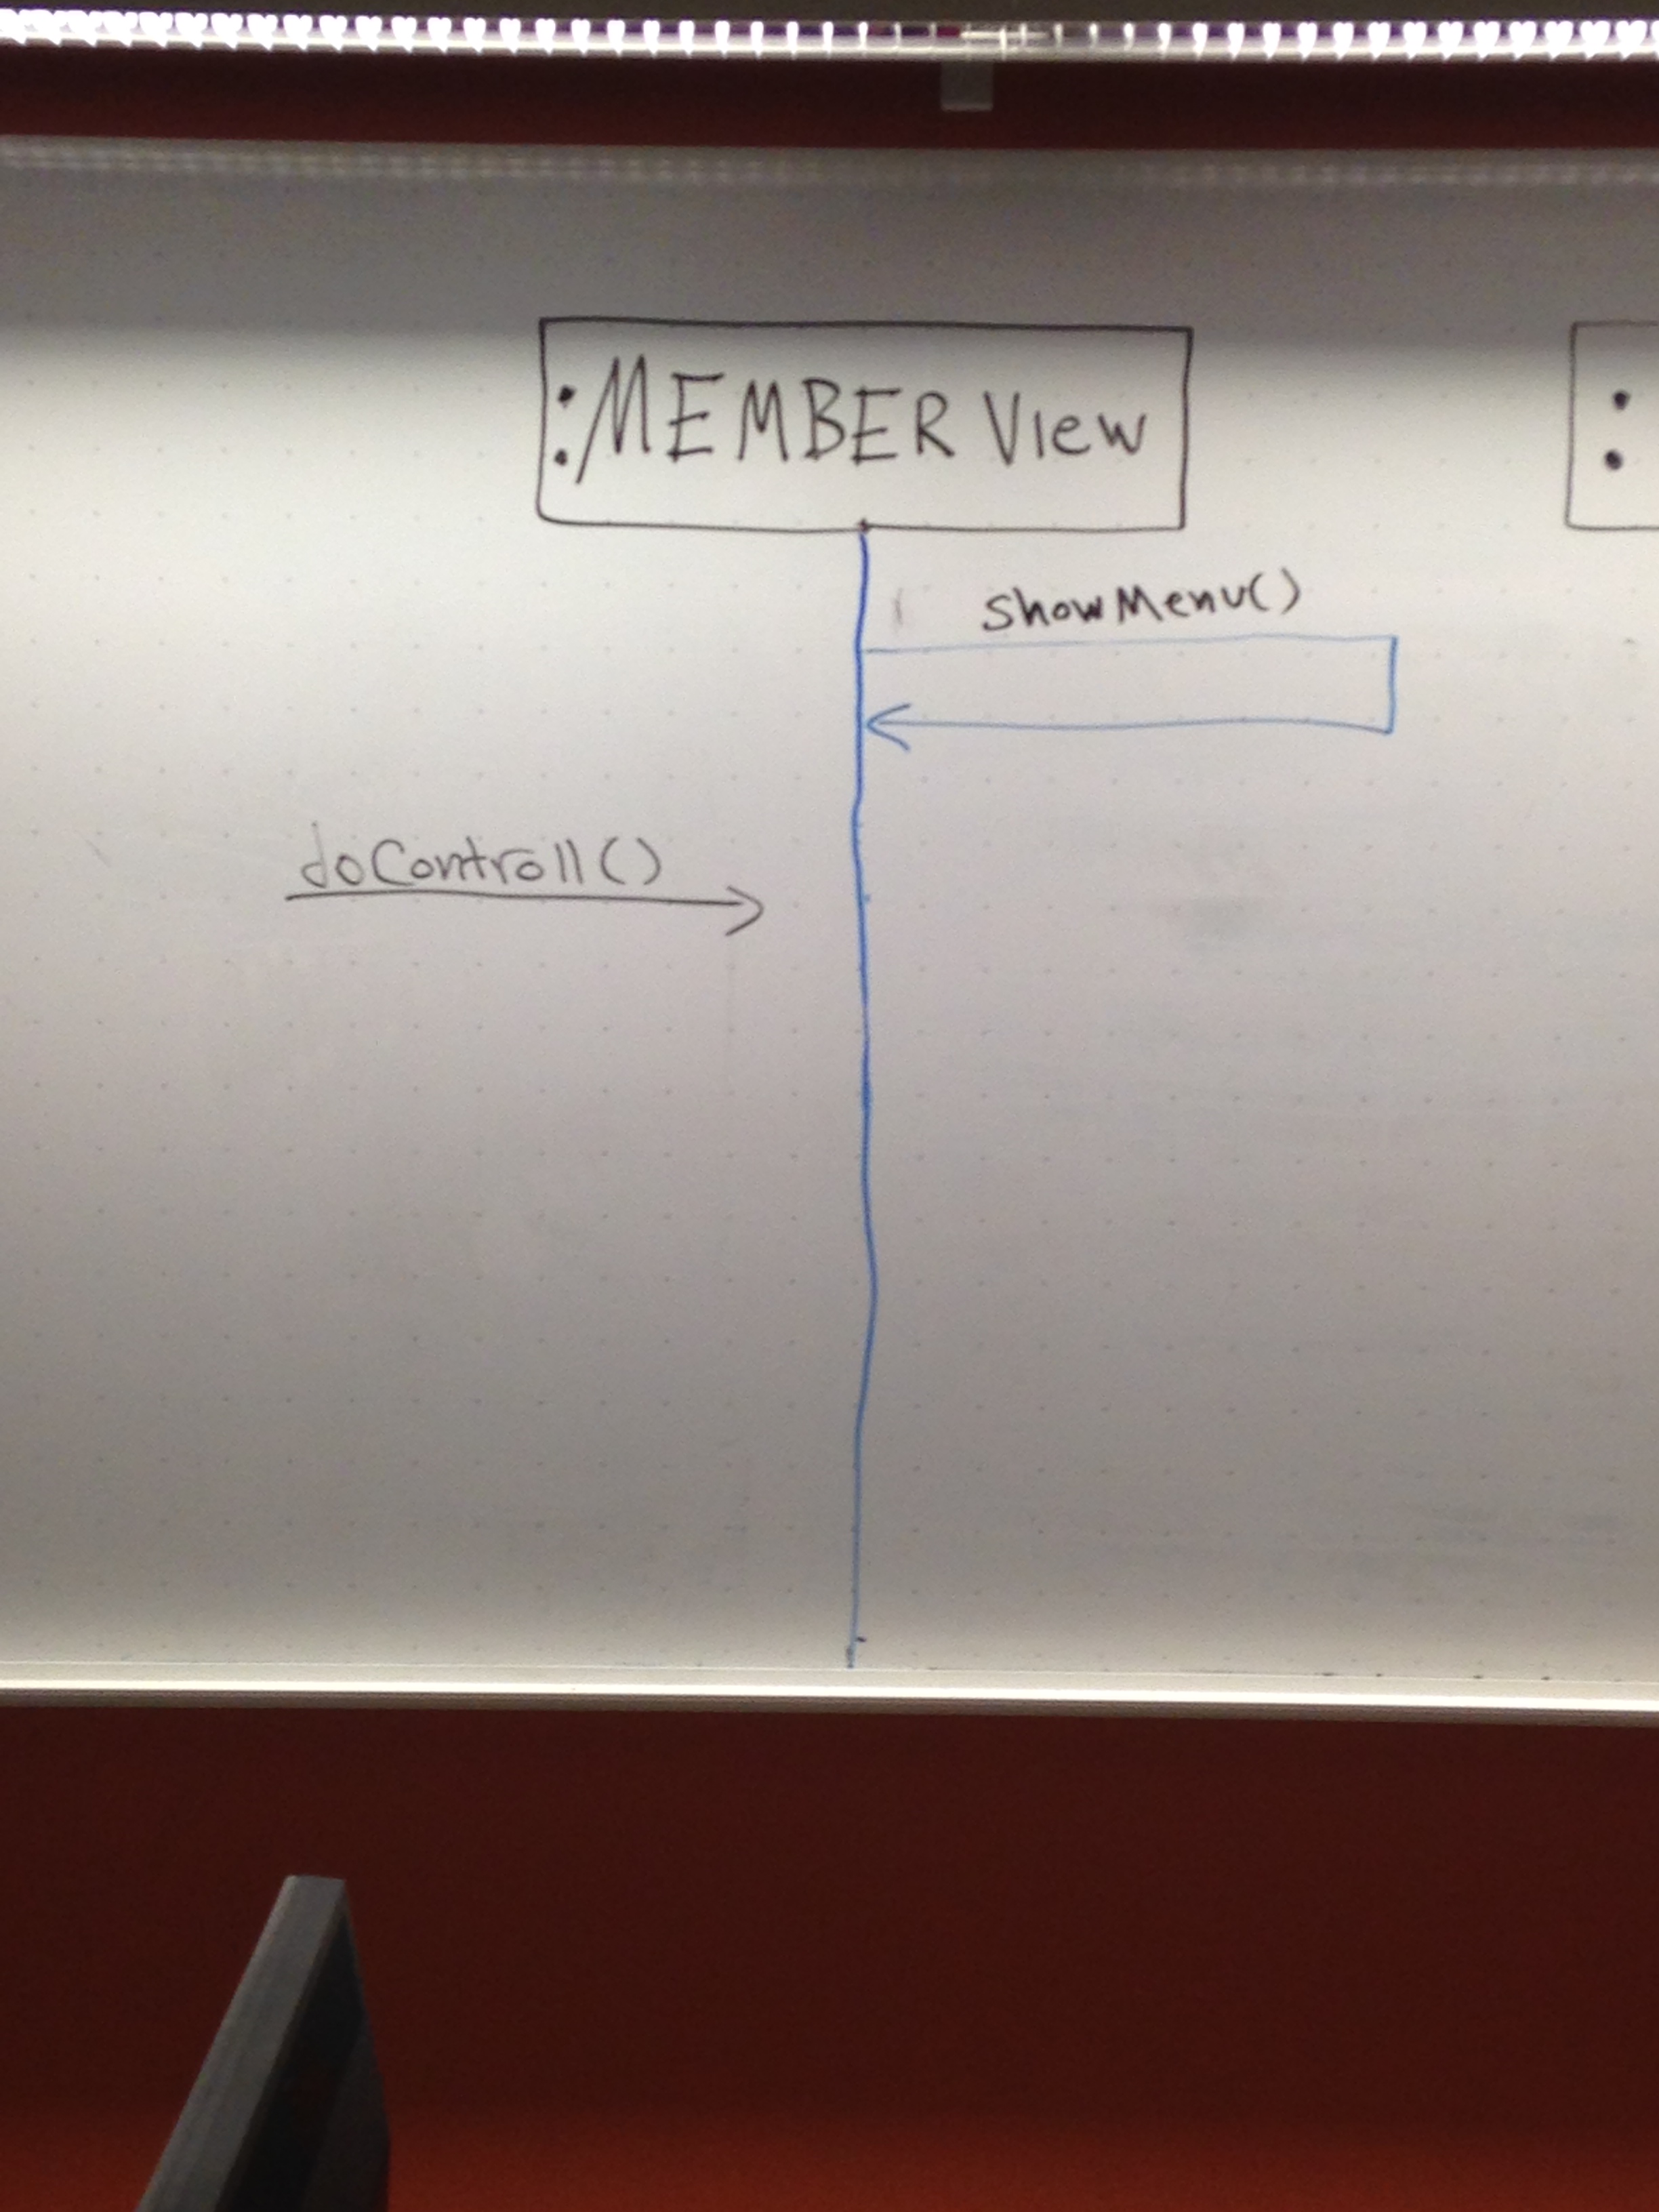 :MEMBER View
:
showMenu()
doControll()